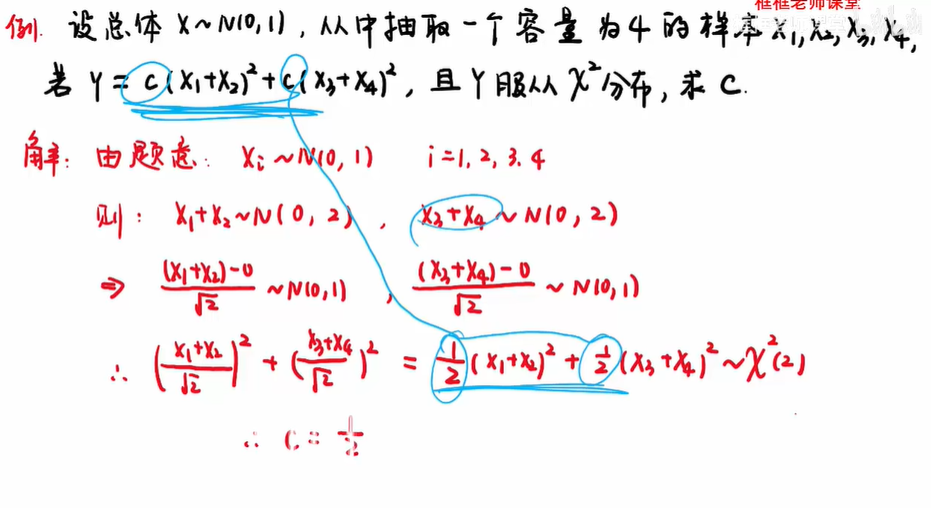 框框老师课堂
例. 设总体 X~N(0,1), 从中抽取一个容量为4的样本 X₁, X₂, X₃, X₄,
若 Y = C(X₁+X₂)² + C(X₃+X₄)², 且 Y 服从 χ² 分布, 求 C.
解: 由题意: Xᵢ~N(0,1) i=1,2,3.4
则: X₁+X₂~N(0,2), X₃+X₄~N(0,2)
⇒ ((X₁+X₂)-0)/√2 ~N(0,1), ((X₃+X₄)-0)/√2 ~N(0,1)
∴ ((X₁+X₂)/√2)² + ((X₃+X₄)/√2)² = 1/2 (X₁+X₂)² + 1/2 (X₃+X₄)² ~χ²(2)
∴ C = 1/2